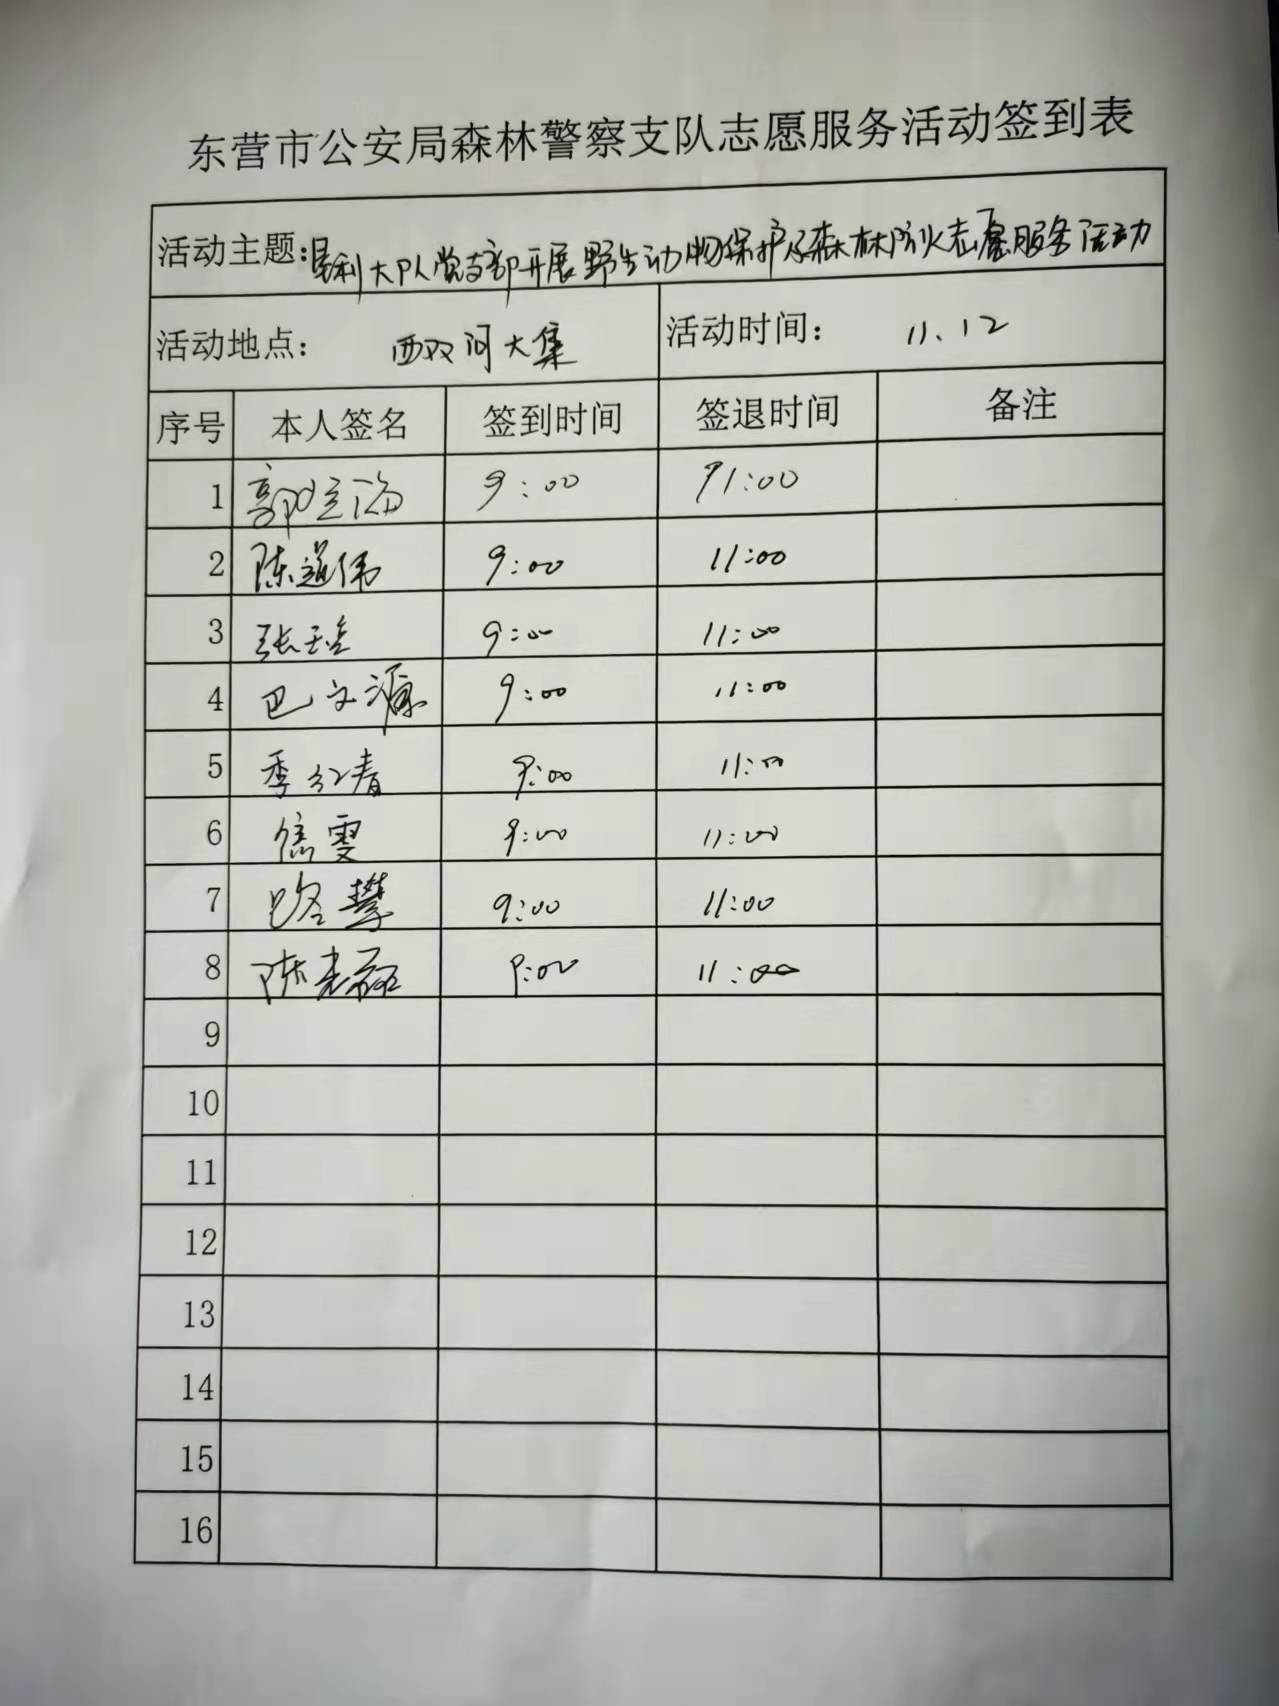 东营市公安局森林警察支队志愿服务活动签到表
活动主题:垦利大队党支部开展野生动物保护及森林防火志愿服务活动
活动地点: 西双河大集 活动时间: 11.12
序号 本人签名 签到时间 签退时间 备注
1 郭 9:00 11:00
2 陈道伟 9:00 11:00
3 张 9:00 11:00
4 巴文源 9:00 11:00
5 季红春 9:00 11:00
6 信雯 9:00 11:00
7 路攀 9:00 11:00
8 陈磊 9:00 11:00
9
10
11
12
13
14
15
16